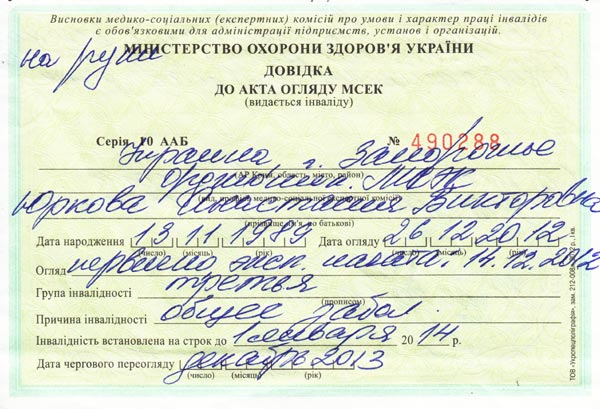 Висновки медико-соціальних (експертних) комісій про умови і характер праці інвалідів
є обов'язковими для адміністрації підприємств, установ і організацій.
на руки
МІНІСТЕРСТВО ОХОРОНИ ЗДОРОВ'Я УКРАЇНИ
ДОВІДКА
ДО АКТА ОГЛЯДУ МСЕК
(видається інваліду)
Серія 10 ААБ № 490288
Украина г. Запорожье
(АР Крим, область, місто, район)
МСЭК
(вид, профіль медико-соціальної експертної комісії)
Юркова Анастасия Викторовна
(прізвище, ім'я, по батькові)
Дата народження 13 11 1989 Дата огляду 26 12 20 12 р.
(число) (місяць) (рік) (число) (місяць) (рік)
Огляд первично, 14.12.2012
Група інвалідності третья
(прописом)
Причина інвалідності общее забол.
Інвалідність встановлена на строк до 1 января 20 14 р.
Дата чергового переогляду декабрь 2013
(число) (місяць) (рік)